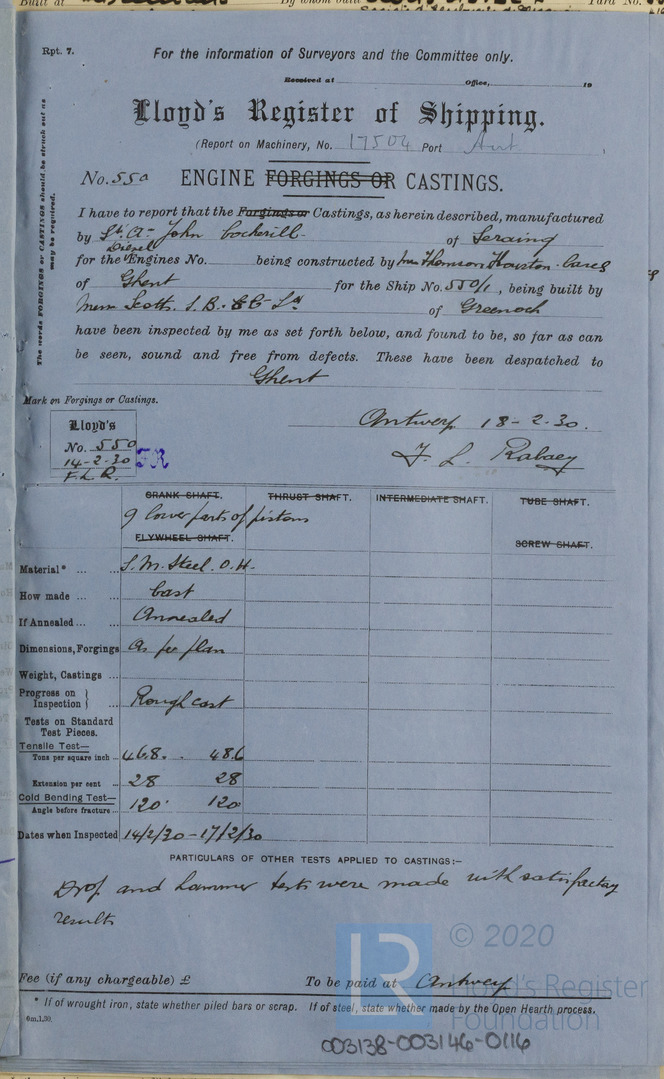 Built at
By whom built
Yard No.
Rpt. 7.
For the information of Surveyors and the Committee only.
Received at Office, 19
Lloyd's Register of Shipping.
(Report on Machinery, No. 17504 Port Ant. )
No. 550 ENGINE FORGINGS OR CASTINGS.
The words FORGINGS or CASTINGS should be struck out as may be required.
I have to report that the Forgings or Castings, as herein described, manufactured
by Sté Ame John Cockerill of Seraing
Diesel
for the Engines No. being constructed by Thomson Houston Carels
of Ghent for the Ship No. 550/1, being built by
Messrs Scotts. S.B. & E Co Ld of Greenock
have been inspected by me as set forth below, and found to be, so far as can
be seen, sound and free from defects. These have been despatched to
Ghent
Mark on Forgings or Castings.
Antwerp 18-2-30.
Lloyd's
No. 550
14-2-30
F.L.R.
FR
F. L. Rabaey
CRANK SHAFT. THRUST SHAFT. INTERMEDIATE SHAFT. TUBE SHAFT.
9 lower parts of pistons
FLYWHEEL SHAFT. SCREW SHAFT.
Material* ... ... S.M. Steel. O.H.
How made ... ... Cast
If Annealed ... ... Annealed
Dimensions, Forgings As per plan
Weight, Castings ...
Progress on Inspection } ... Rough cast
Tests on Standard
Test Pieces.
Tensile Test—
Tons per square inch ... 46.8. . 48.6
Extension per cent ... 28 28
Cold Bending Test—
Angle before fracture ... 120° 120
Dates when Inspected 14/2/30 - 17/2/30
PARTICULARS OF OTHER TESTS APPLIED TO CASTINGS:—
Drop and hammer tests were made with satisfactory
results
© 2020
Lloyd's Register
Foundation
LR
Fee (if any chargeable) £ To be paid at Antwerp
* If of wrought iron, state whether piled bars or scrap. If of steel, state whether made by the Open Hearth process.
6m,1,30.
003138-003146-0116